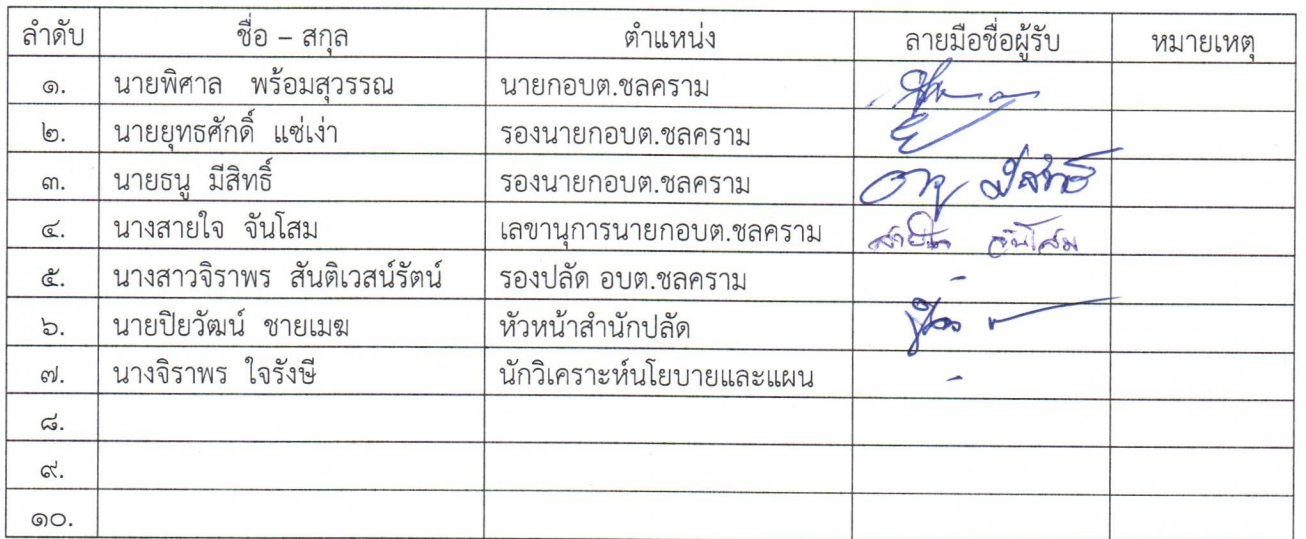 ลำดับ ชื่อ – สกุล ตำแหน่ง ลายมือชื่อผู้รับ หมายเหตุ
๑. นายพิศาล พร้อมสุวรรณ นายกอบต.ชลคราม
๒. นายยุทธศักดิ์ แซ่เง่า รองนายกอบต.ชลคราม
๓. นายธนู มีสิทธิ์ รองนายกอบต.ชลคราม
๔. นางสายใจ จันโสม เลขานุการนายกอบต.ชลคราม สายใจ จันโสม
๕. นางสาวจิราพร สันติเวสน์รัตน์ รองปลัด อบต.ชลคราม -
๖. นายปิยวัฒน์ ชายเมฆ หัวหน้าสำนักปลัด
๗. นางจิราพร ใจรังษี นักวิเคราะห์นโยบายและแผน -
๘.
๙.
๑๐.